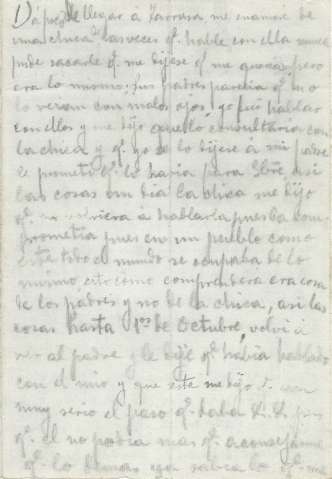 Da pues de llegar á Tarrasa me enamoré de
una chica las veces q.e hable con ella nunca
pude sacarle q.e me dijese q.e me queria pero
era lo mismo; sus padres parecia q.e no
lo veian con malos ojos; yo fui hablar
con ellos y me dijo aquello, consultaria con
la chica y q.e yo se lo dijese á mi padre
le prometí q.e lo haria para 8bre, asi
las cosas un dia la chica me dijo
q.e no volviera á hablarla pues la com
prometia pues en un pueblo como
este todo el mundo se ocupaba de lo
mismo, esto como comprendera era cosa
de los padres y no de la chica, asi las
cosas hasta 1os de Octubre, volví á
ver al padre y le dije q.e habia hablado
con el mio y que este me dijo
muy serio el paso q.e daba &. &. pues
q.e el no podia mas q.e aconsejarme
q.e lo demas